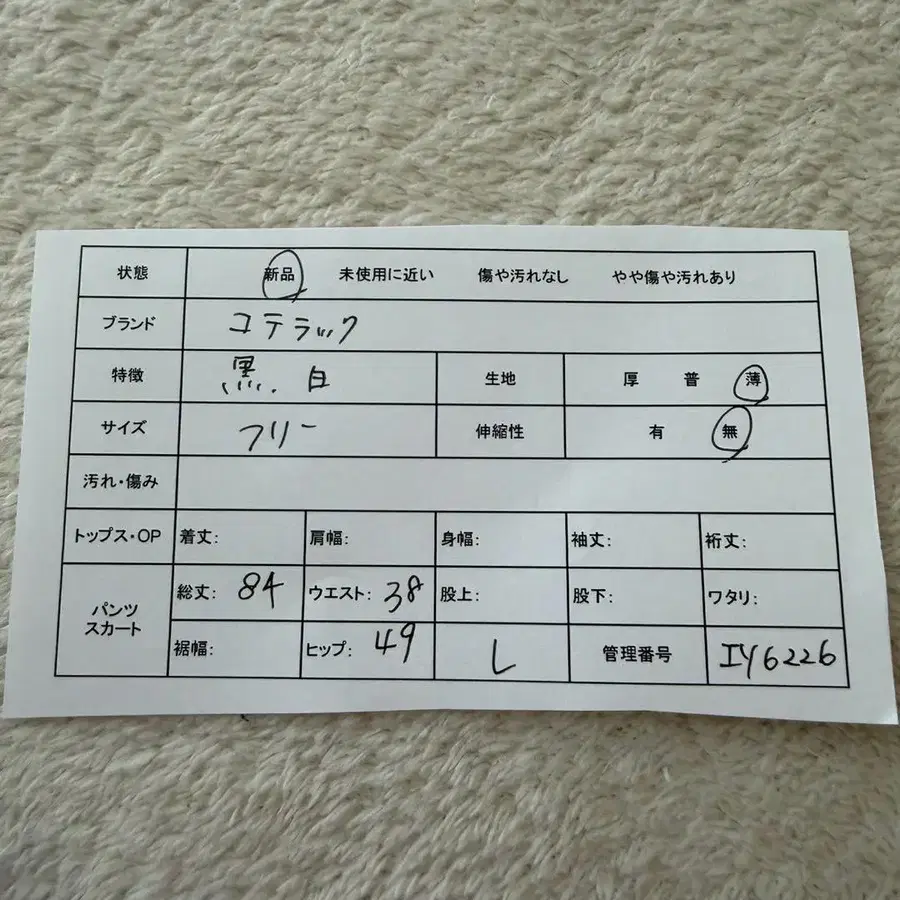 状態 新品 未使用に近い 傷や汚れなし やや傷や汚れあり
ブランド コテラック
特徴 黒、白 生地 厚 普 薄
サイズ フリー 伸縮性 有 無
汚れ・傷み
トップス・OP 着丈: 肩幅: 身幅: 袖丈: 裄丈:
パンツ スカート 総丈: 84 ウエスト: 38 股上: 股下: ワタリ:
裾幅: ヒップ: 49 L 管理番号 IY6226